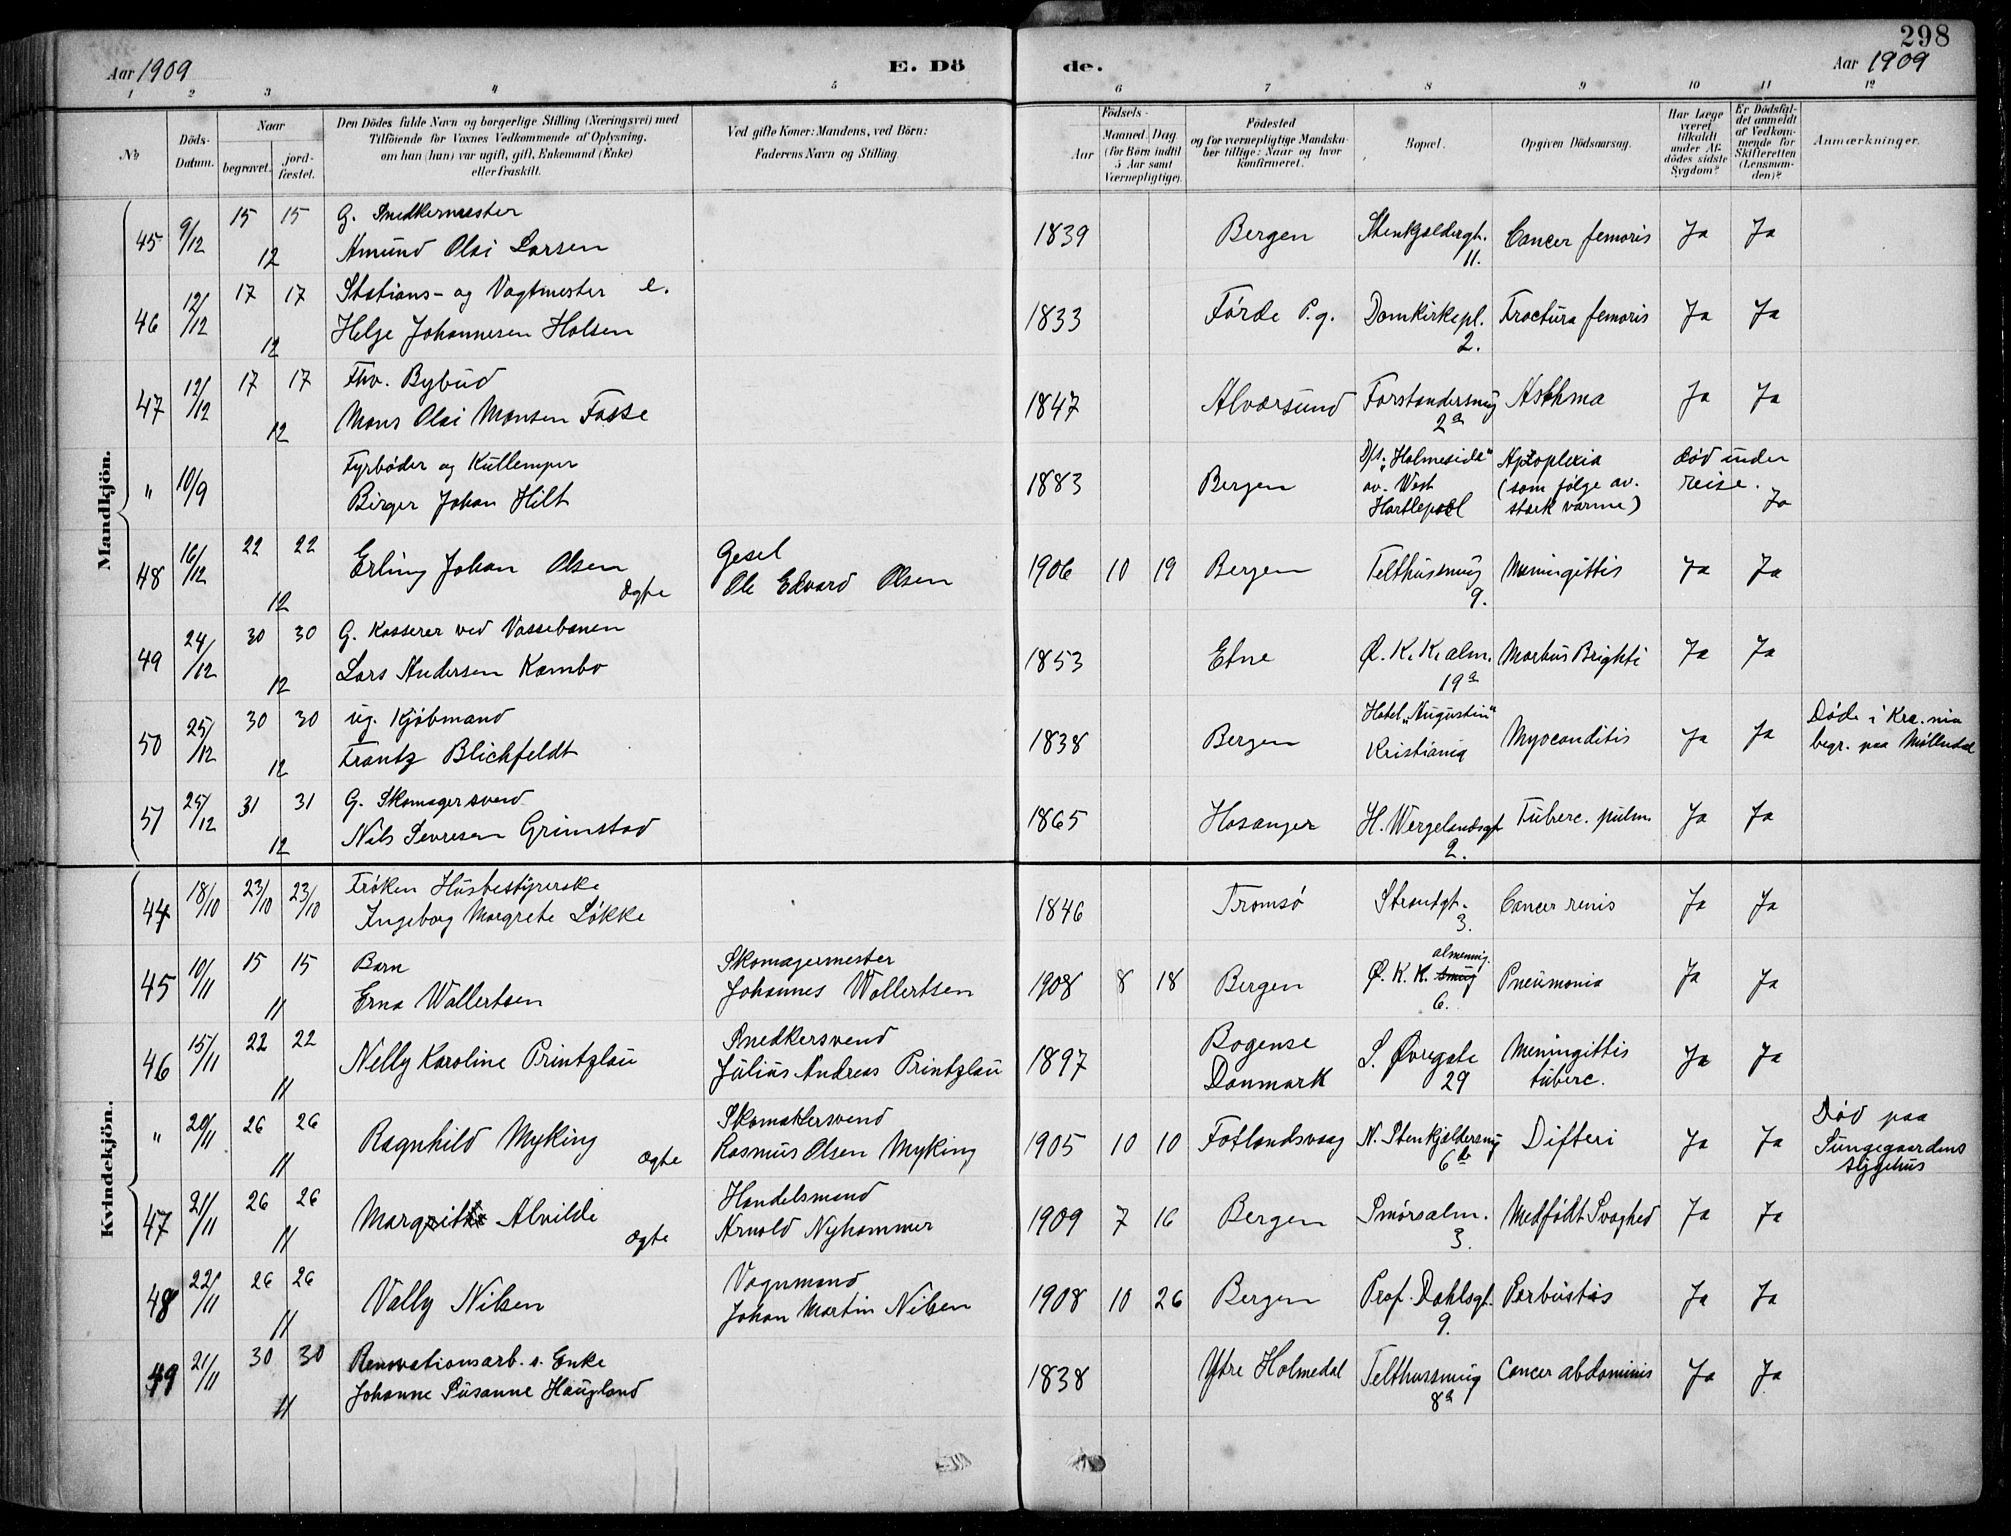 298
Aar 1909
E. Dö
de.
Aar 1909
1 2 3 4 5 6 7 8 9 10 11 12
No
Döds-Datum.
Naar
begravet.
jord-fæstet.
Den Dödes fulde Navn og borgerlige Stilling (Næringsvei) med
Tilföiende for Voxnes Vedkommende af Oplysning,
om han (hun) var ugift, gift, Enkemand (Enke)
eller fraskilt.
Ved gifte Koner: Mandens, ved Börn:
Faderens Navn og Stilling
Födsels-
Aar
Maaned. Dag
(for Börn indtil
5 Aar samt
Værnepligtige).
Födested
og for værnepligtige Mandska-
ber tillige: Naar og hvor
konfirmeret.
Bopæl.
Opgiven Dödsaarsag.
Har Læge
været
tilkaldt
under Af-
dödes sidste
Sygdom?
Er Dödsfal-
det anmeldt
af Vedkom-
mende for
Skifteretten
(Lensman-
den)?
Anmærkninger.
Mandkjön.
45 9/12 15 15 12 G. Snedkermester
Amund Olai Larsen 1839 Bergen Stenkjældergt. 11. Cancer femoris Ja Ja
46 12/12 17 17 12 Stations- og Vagtmester e.
Helge Johannesen Holsen 1833 Førde P.g. Domkirkepl. 2. Fractura femoris Ja Ja
47 12/12 17 17 12 Fhv. Bybud
Mons Olai Monsen Fosse 1847 Alværsund Forstandersmug 2a Asthma Ja Ja
" 10/9 Fyrbøder og Kullemper
Birger Johan Hilt 1883 Bergen D/s. "Holmeside"
av. West
Hartlepool Apoplexia
(som følge av.
stærk varme) død under
reise. Ja
48 16/12 22 22 12 Erling Johan Olsen ægte Gesel
Ole Edvard Olsen 1906 10 19 Bergen Telthussmug 9. Meningittis Ja Ja
49 24/12 30 30 12 G. Kasserer ved Vossebanen
Lars Andersen Kambo 1853 Etne Ø. K. K. alm. 19a Morbus Brighti Ja Ja
50 25/12 30 30 12 ug. Kjøbmand
Frantz Blichfeldt 1838 Bergen Hotel "Augustin"
Kristiania Myocarditis Ja Ja Døde i Kra.nia
begr. paa Møllendal
51 25/12 31 31 12 G. Skomagersvend
Nils Sevresen Grimstad 1865 Hosanger H. Wergelandsgt 2. Tuberc. pulm. Ja Ja
Kvindekjön.
44 18/10 23/10 23/10 Frøken Husbestyrerske
Ingeborg Margrete Løkke 1846 Tromsø Strandgt. 3. Cancer renis Ja Ja
45 10/11 15 15 11 Barn
Erna Wallertsen Skomagermester
Johannes Wallertsen 1908 8 18 Bergen Ø. K. K. smug almennig. 6. Pneumonia Ja Ja
46 15/11 22 22 11 Nelly Karoline Printzlau Snedkersvend
Julius Andreas Printzlau 1897 Bogense
Danmark L. Øvregate 29 Meningittis
tuberc. Ja Ja
" 20/11 26 26 11 Ragnhild Myking ægte Skomakersvend
Rasmus Olsen Myking 1905 10 10 Fotlandsvaag N. Stenkjældersmug 6b Difteri Ja Ja Død paa
Pungegaardens
sygehus
47 21/11 26 26 11 Margrit Alvilde ægte Handelsmand
Arnold Nyhammer 1909 7 16 Bergen Smørsalm. 3. Medfødt Svaghed Ja Ja
48 22/11 26 26 11 Vally Nilsen Vognmand
Johan Martin Nilsen 1908 10 26 Bergen Prof. Dahlsgt. 9. Ja Ja
49 21/11 30 30 11 Renovationsarb.s. Enke
Johanne Susanne Haugland 1838 Ytre Holmedal Telthussmug 8a Cancer abdominis Ja Ja